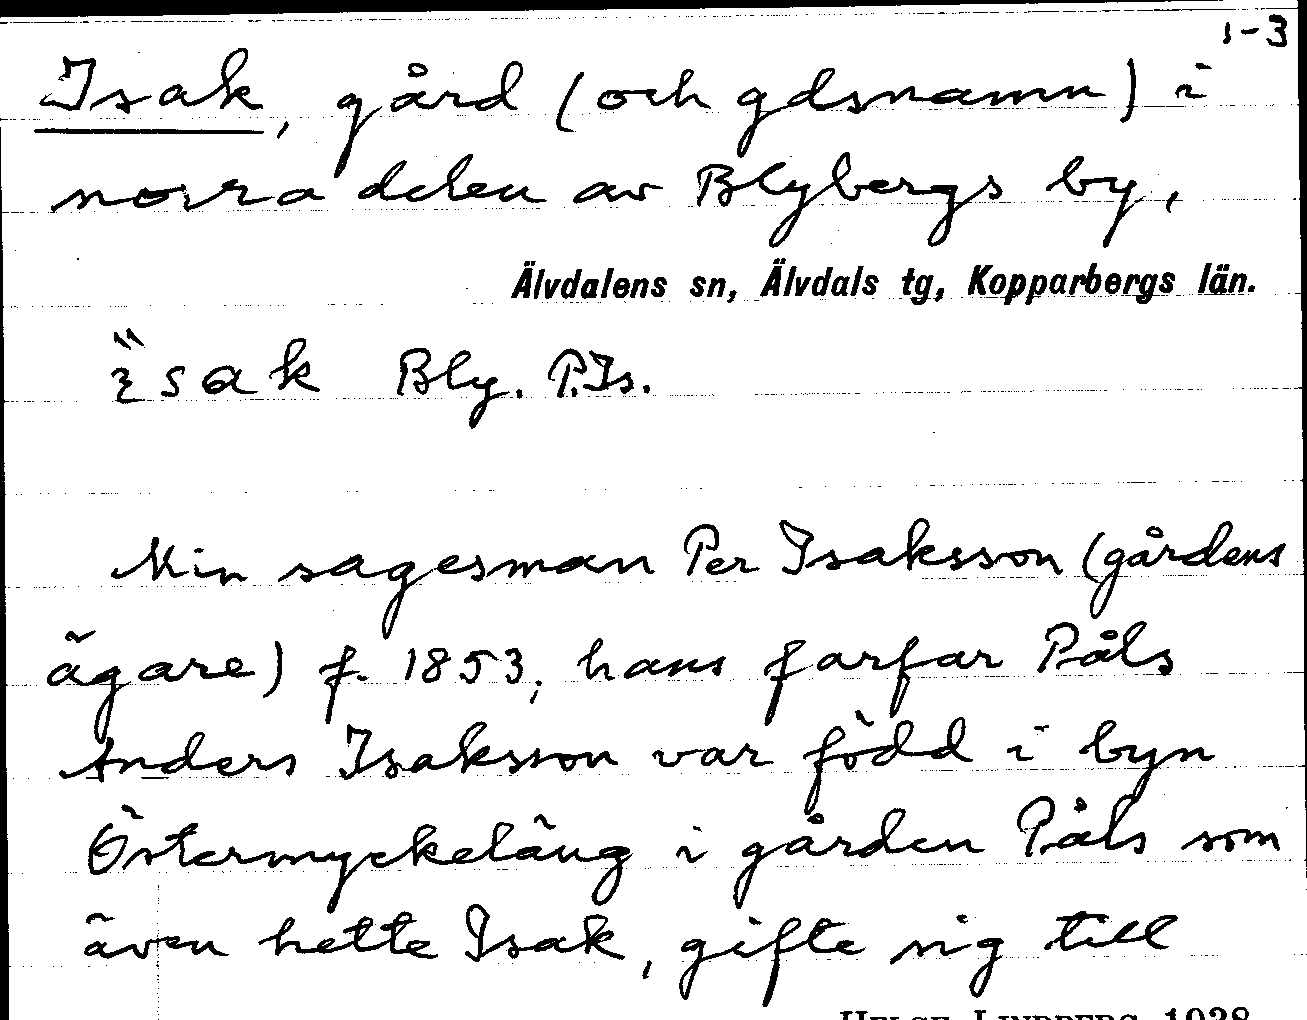 1-3
Isak, gård (och gdsnamn) i
norra delen av Blybergs by,
Älvdalens sn, Älvdals tg, Kopparbergs län.
sak Bly. P.Is.
Min sagesman Per Isaksson (gårdens
ägare) f. 1853, hans farfar Påls
Anders Isaksson var född i byn
Östermyckeläng i gården Påls som
även hette Isak, gifte sig till
HELGE LINDBERG 1928